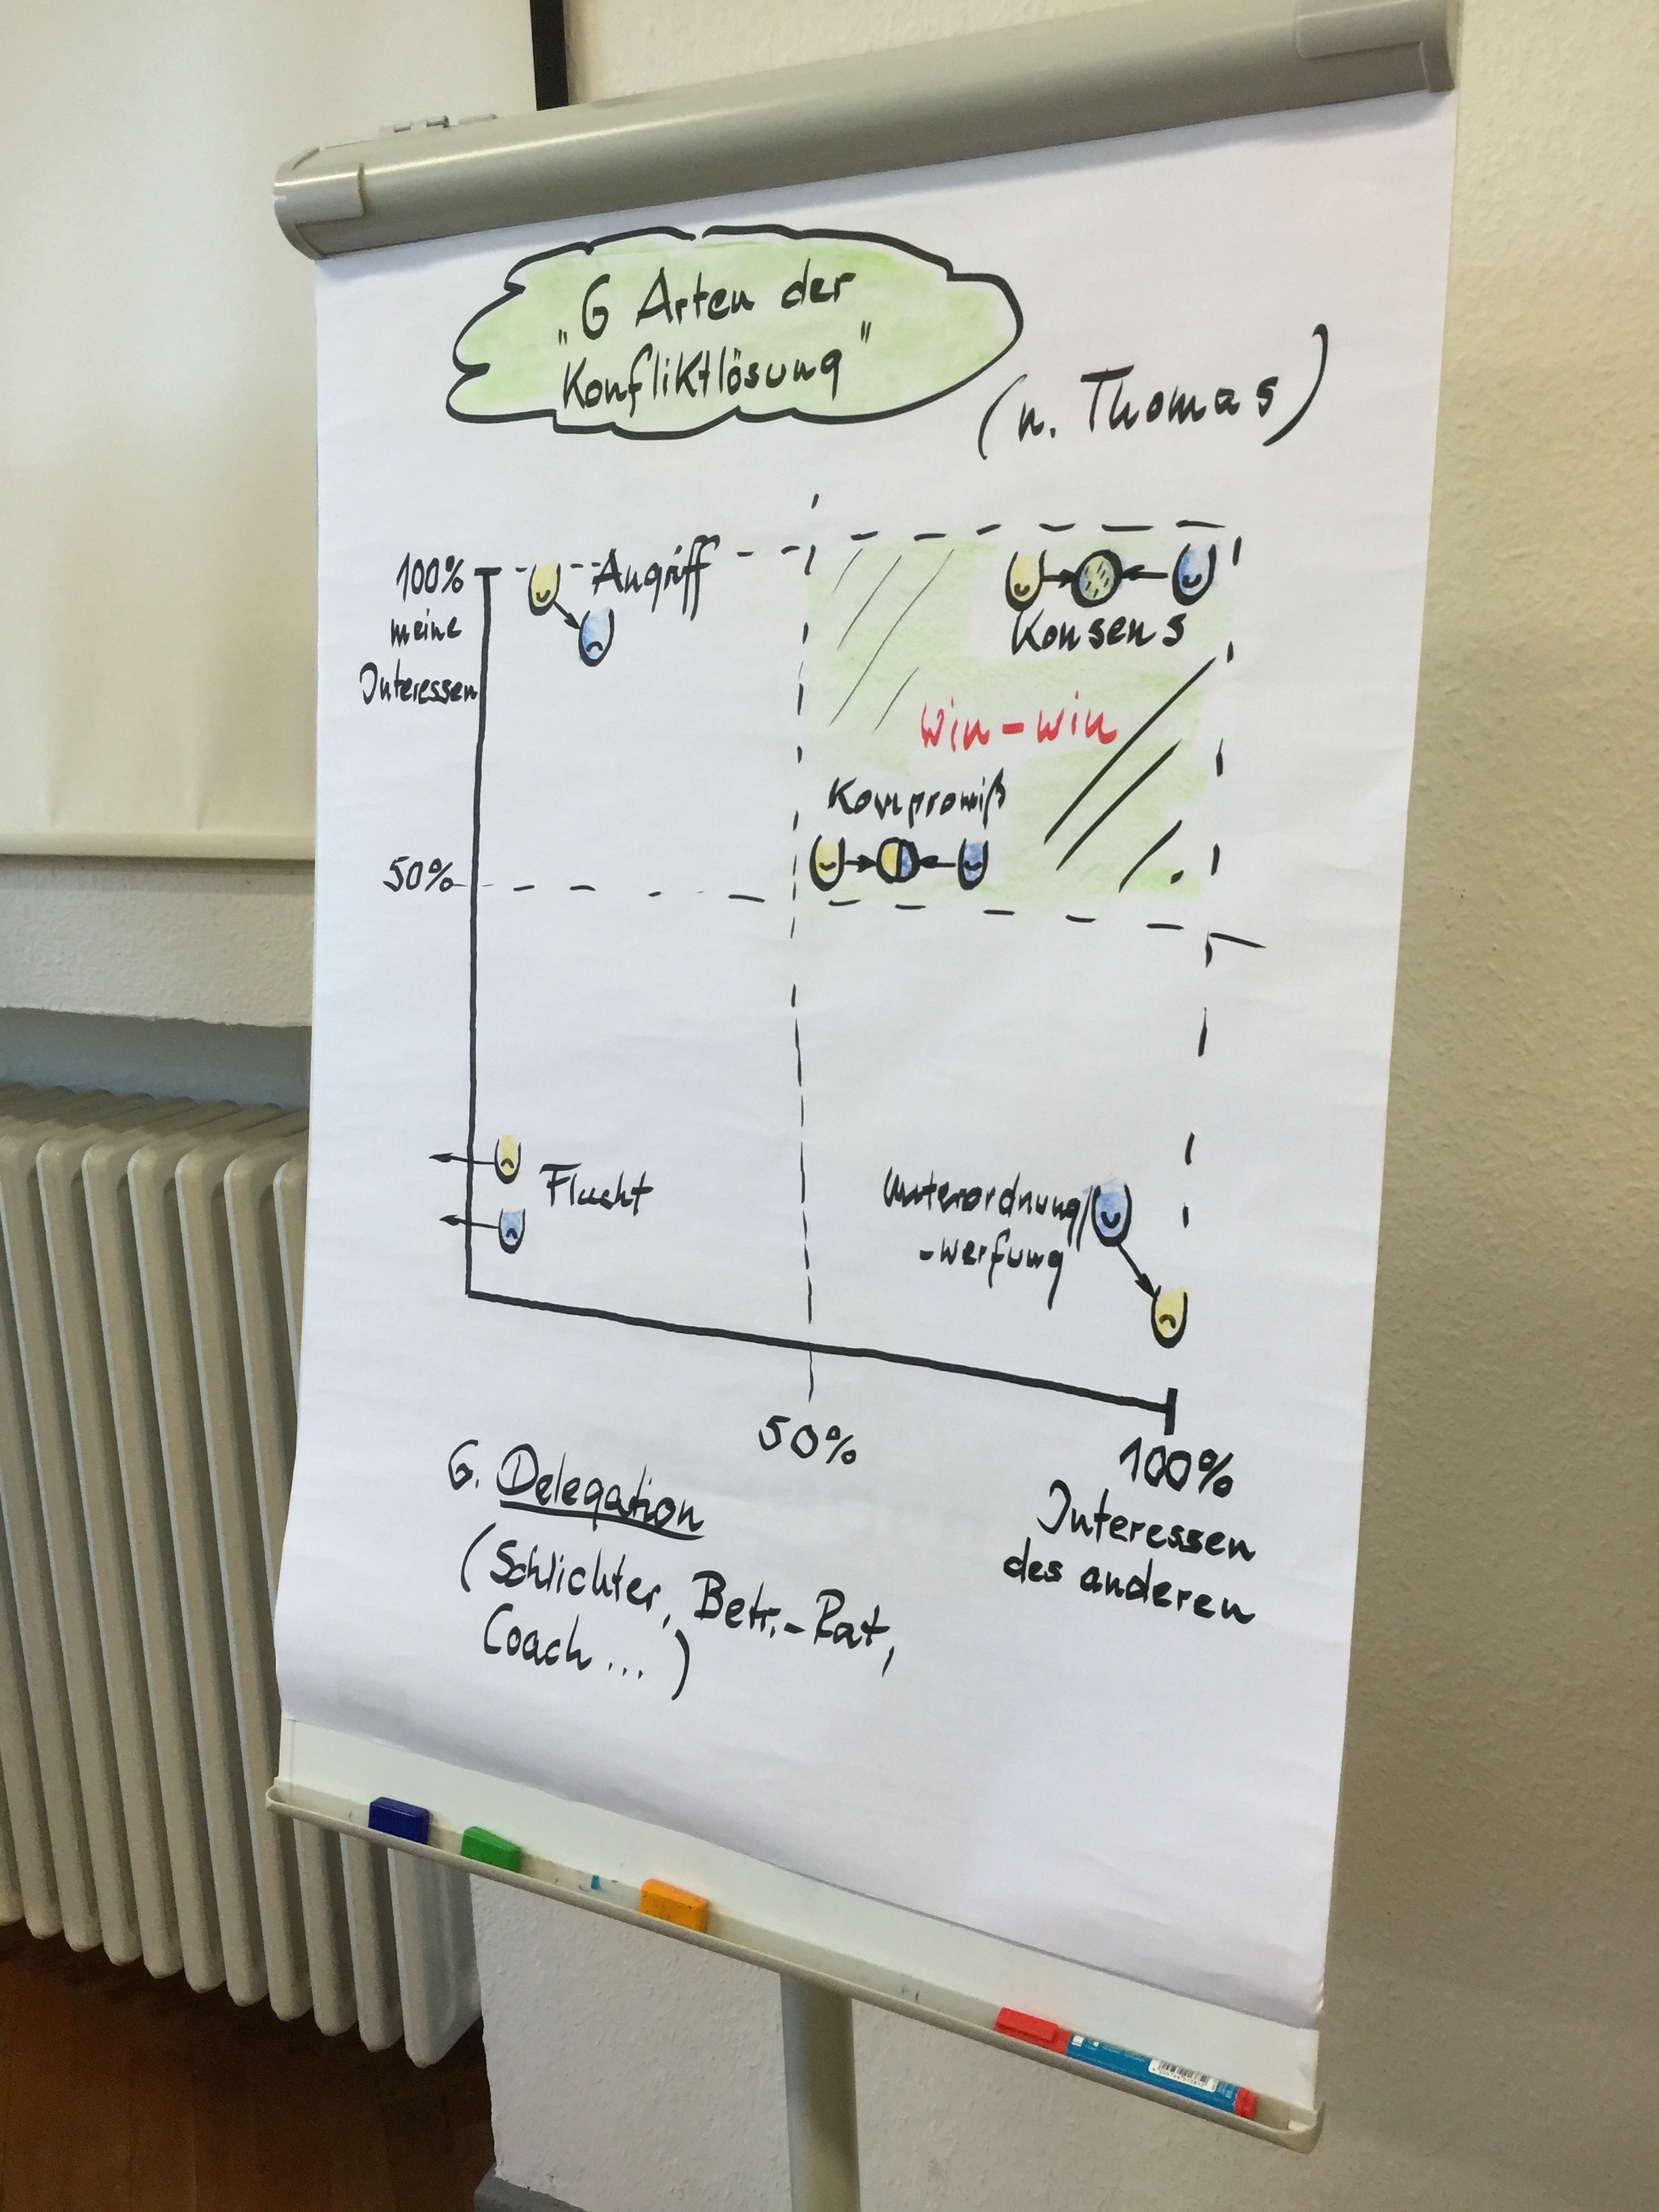 „6 Arten der
Konfliktlösung"
(n. Thomas)
100%
meine
Interessen
Angriff
Konsens
win-win
Kompromiß
50%
Flucht
Unterordnung/
-werfung
50%
100%
Interessen
des anderen
6. Delegation
(Schlichter, Betr.-Rat,
Coach...)